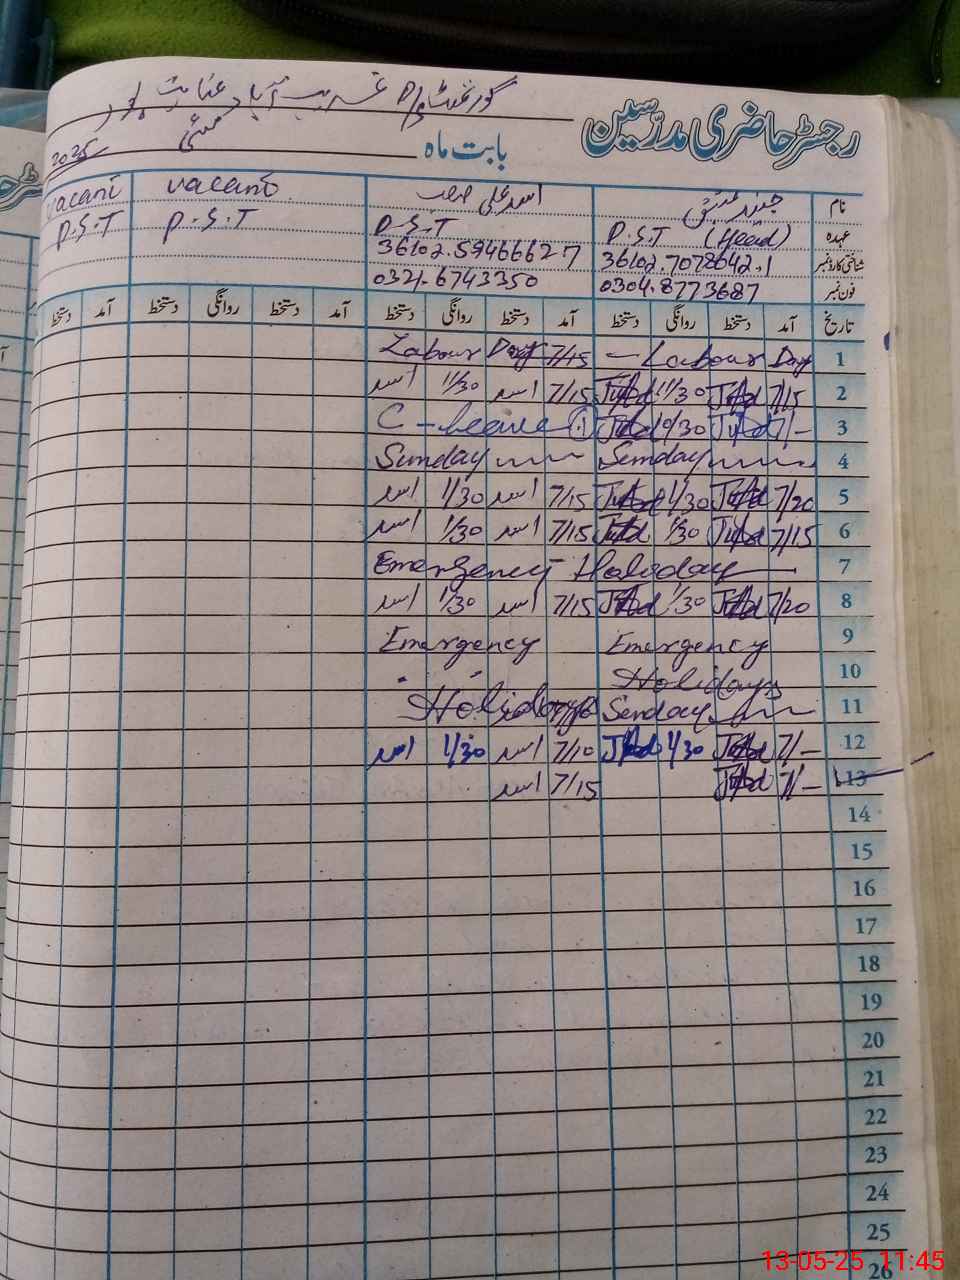 رجسٹر حاضری مدرسین
گورنمنٹ P/S غریب آباد عنایت پور
بابت ماہ مئی 2025
نام جنید عتیق اسد علی vacant vacant
عہدہ P.S.T (Head) P.S.T P.S.T P.S.T
شناختی کارڈ نمبر 36102.7078642.1 36102.5946662-7
فون نمبر 0304.8773687 0321.6743350
تاریخ آمد دستخط روانگی دستخط آمد دستخط روانگی دستخط آمد دستخط روانگی دستخط آمد دستخط
1 Labour Day — 7/15 Labour Day
2 7/15 11/30 7/15 اسد 11/30 اسد
3 7/— C-leave ①
4 Sunday Sunday
5 7/20 1/30 7/15 اسد 1/30 اسد
6 7/15 1/30 7/15 اسد 1/30 اسد
7 Emergency Holiday
8 7/20 1/30 7/15 اسد 1/30 اسد
9 Emergency Emergency
10 Holidays
11 Sunday Holidays
12 7/— 1/30 7/10 اسد 1/30 اسد
13 7/— 7/15 اسد
14
15
16
17
18
19
20
21
22
23
24
25
26
13-05-25 11:45